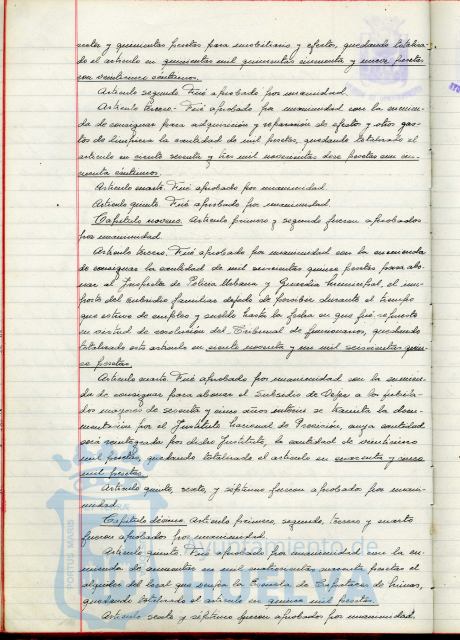 sesenta y quinientas pesetas para mobiliario y efectos, quedando totaliza-
do el artículo en quinientas mil quinientas cincuenta y nueve pesetas
con veinticinco céntimos.
Artículo segundo. Fué aprobado por unanimidad.
Artículo tercero. Fué aprobado por unanimidad con la enmien-
da de consignar para adquisición y reparación de efectos y otros gas-
tos de limpieza la cantidad de mil pesetas, quedando totalizado el
artículo en ciento sesenta y tres mil novecientas doce pesetas con cin-
cuenta céntimos.
Artículo cuarto. Fué aprobado por unanimidad.
Artículo quinto. Fué aprobado por unanimidad.
Capítulo noveno. Artículo primero y segundo fueron aprobados
por unanimidad.
Artículo tercero. Fué aprobado por unanimidad con la enmienda
de consignar la cantidad de mil seiscientas quince pesetas para abo-
nar al Inspector de Policía Urbana y Guardia Municipal, el im-
porte del subsidio familiar dejado de percibir durante el tiempo
que estuvo de empleo y sueldo hasta la fecha en que fué repuesto
en virtud de resolución del Tribunal de funcionarios, quedando
totalizado este artículo en ciento noventa y un mil seiscientas quin-
ce pesetas.
Artículo cuarto. Fué aprobado por unanimidad con la enmien-
da de consignar para abonar el Subsidio de Vejez a los jubila-
dos mayores de sesenta y cinco años interin se tramita la docu-
mentación por el Instituto Nacional de Previsión, cuya cantidad
será reintegrada por dicho Instituto, la cantidad de veinticinco
mil pesetas, quedando totalizado el artículo en cuarenta y cinco
mil pesetas.
Artículo quinto, sexto, y séptimo fueron aprobados por unani-
midad.
Capítulo décimo. Artículo primero, segundo, tercero y cuarto
fueron aprobados por unanimidad.
Artículo quinto. Fué aprobado por unanimidad con la en-
mienda de aumentar en mil cuatrocientas cuarenta pesetas el
alquiler del local que ocupa la Escuela de Capataces de Minas,
quedando totalizado el artículo en quince mil pesetas.
Artículo sexto y séptimo fueron aprobados por unanimidad.
PORTUS MARIS
Ayuntamiento de